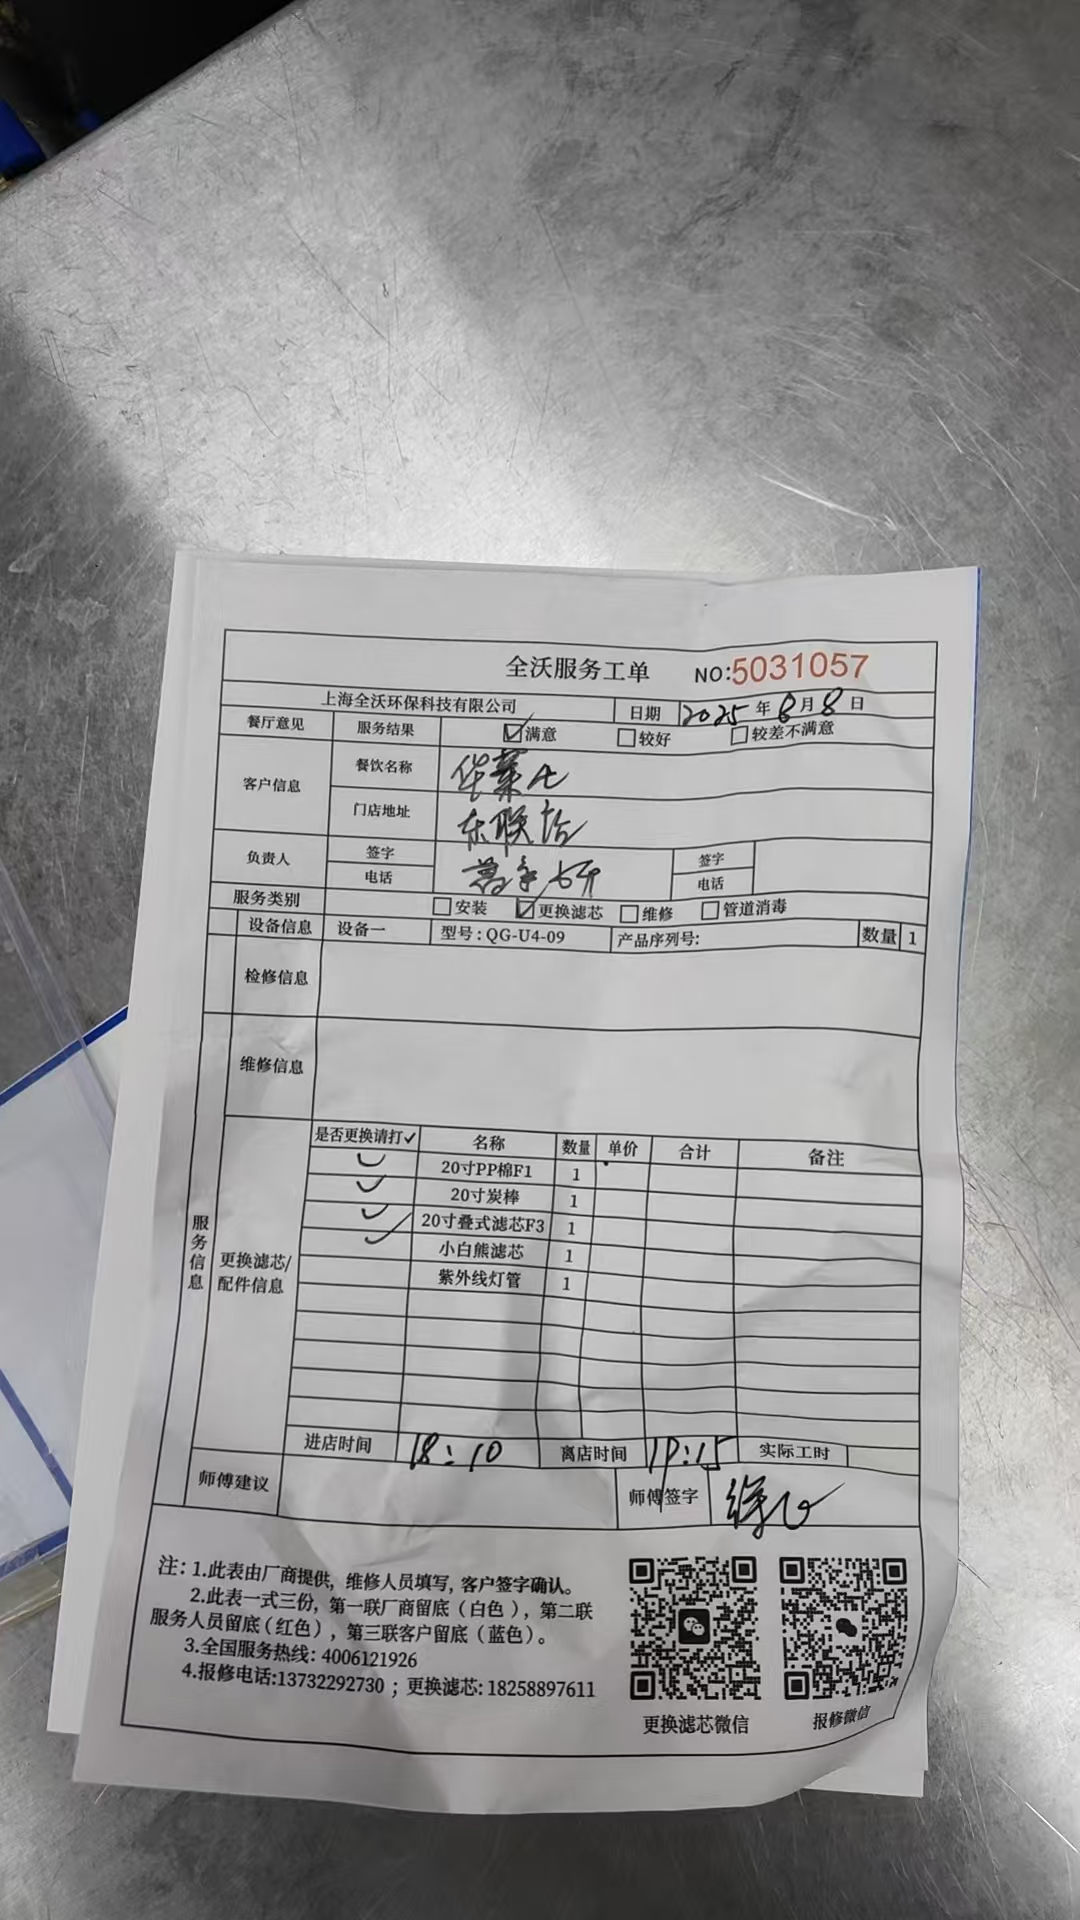 全沃服务工单 NO:5031057
上海全沃环保科技有限公司 日期 2025年8月8日
餐厅意见 服务结果 ☑满意 □较好 □较差不满意
客户信息 餐饮名称 华莱士
门店地址 东联
负责人 签字 签字
电话 电话
服务类别 □安装 ☑更换滤芯 □维修 □管道消毒
设备信息 设备一 型号:QG-U4-09 产品序列号: 数量 1
检修信息
维修信息
服务信息
更换滤芯/配件信息
是否更换请打✓ 名称 数量 单价 合计 备注
✓ 20寸PP棉F1 1
✓ 20寸炭棒 1
✓ 20寸叠式滤芯F3 1
✓ 小白熊滤芯 1
紫外线灯管 1
进店时间 18:10 离店时间 19:15 实际工时
师傅建议 师傅签字
注: 1.此表由厂商提供, 维修人员填写, 客户签字确认。
2.此表一式三份, 第一联厂商留底 (白色), 第二联
服务人员留底 (红色), 第三联客户留底 (蓝色)。
3.全国服务热线: 4006121926
4.报修电话:13732292730 ; 更换滤芯: 18258897611
更换滤芯微信 报修微信